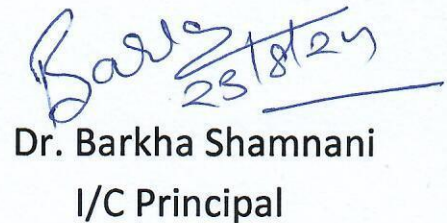 Barkha
23/8/24
Dr. Barkha Shamnani
I/C Principal